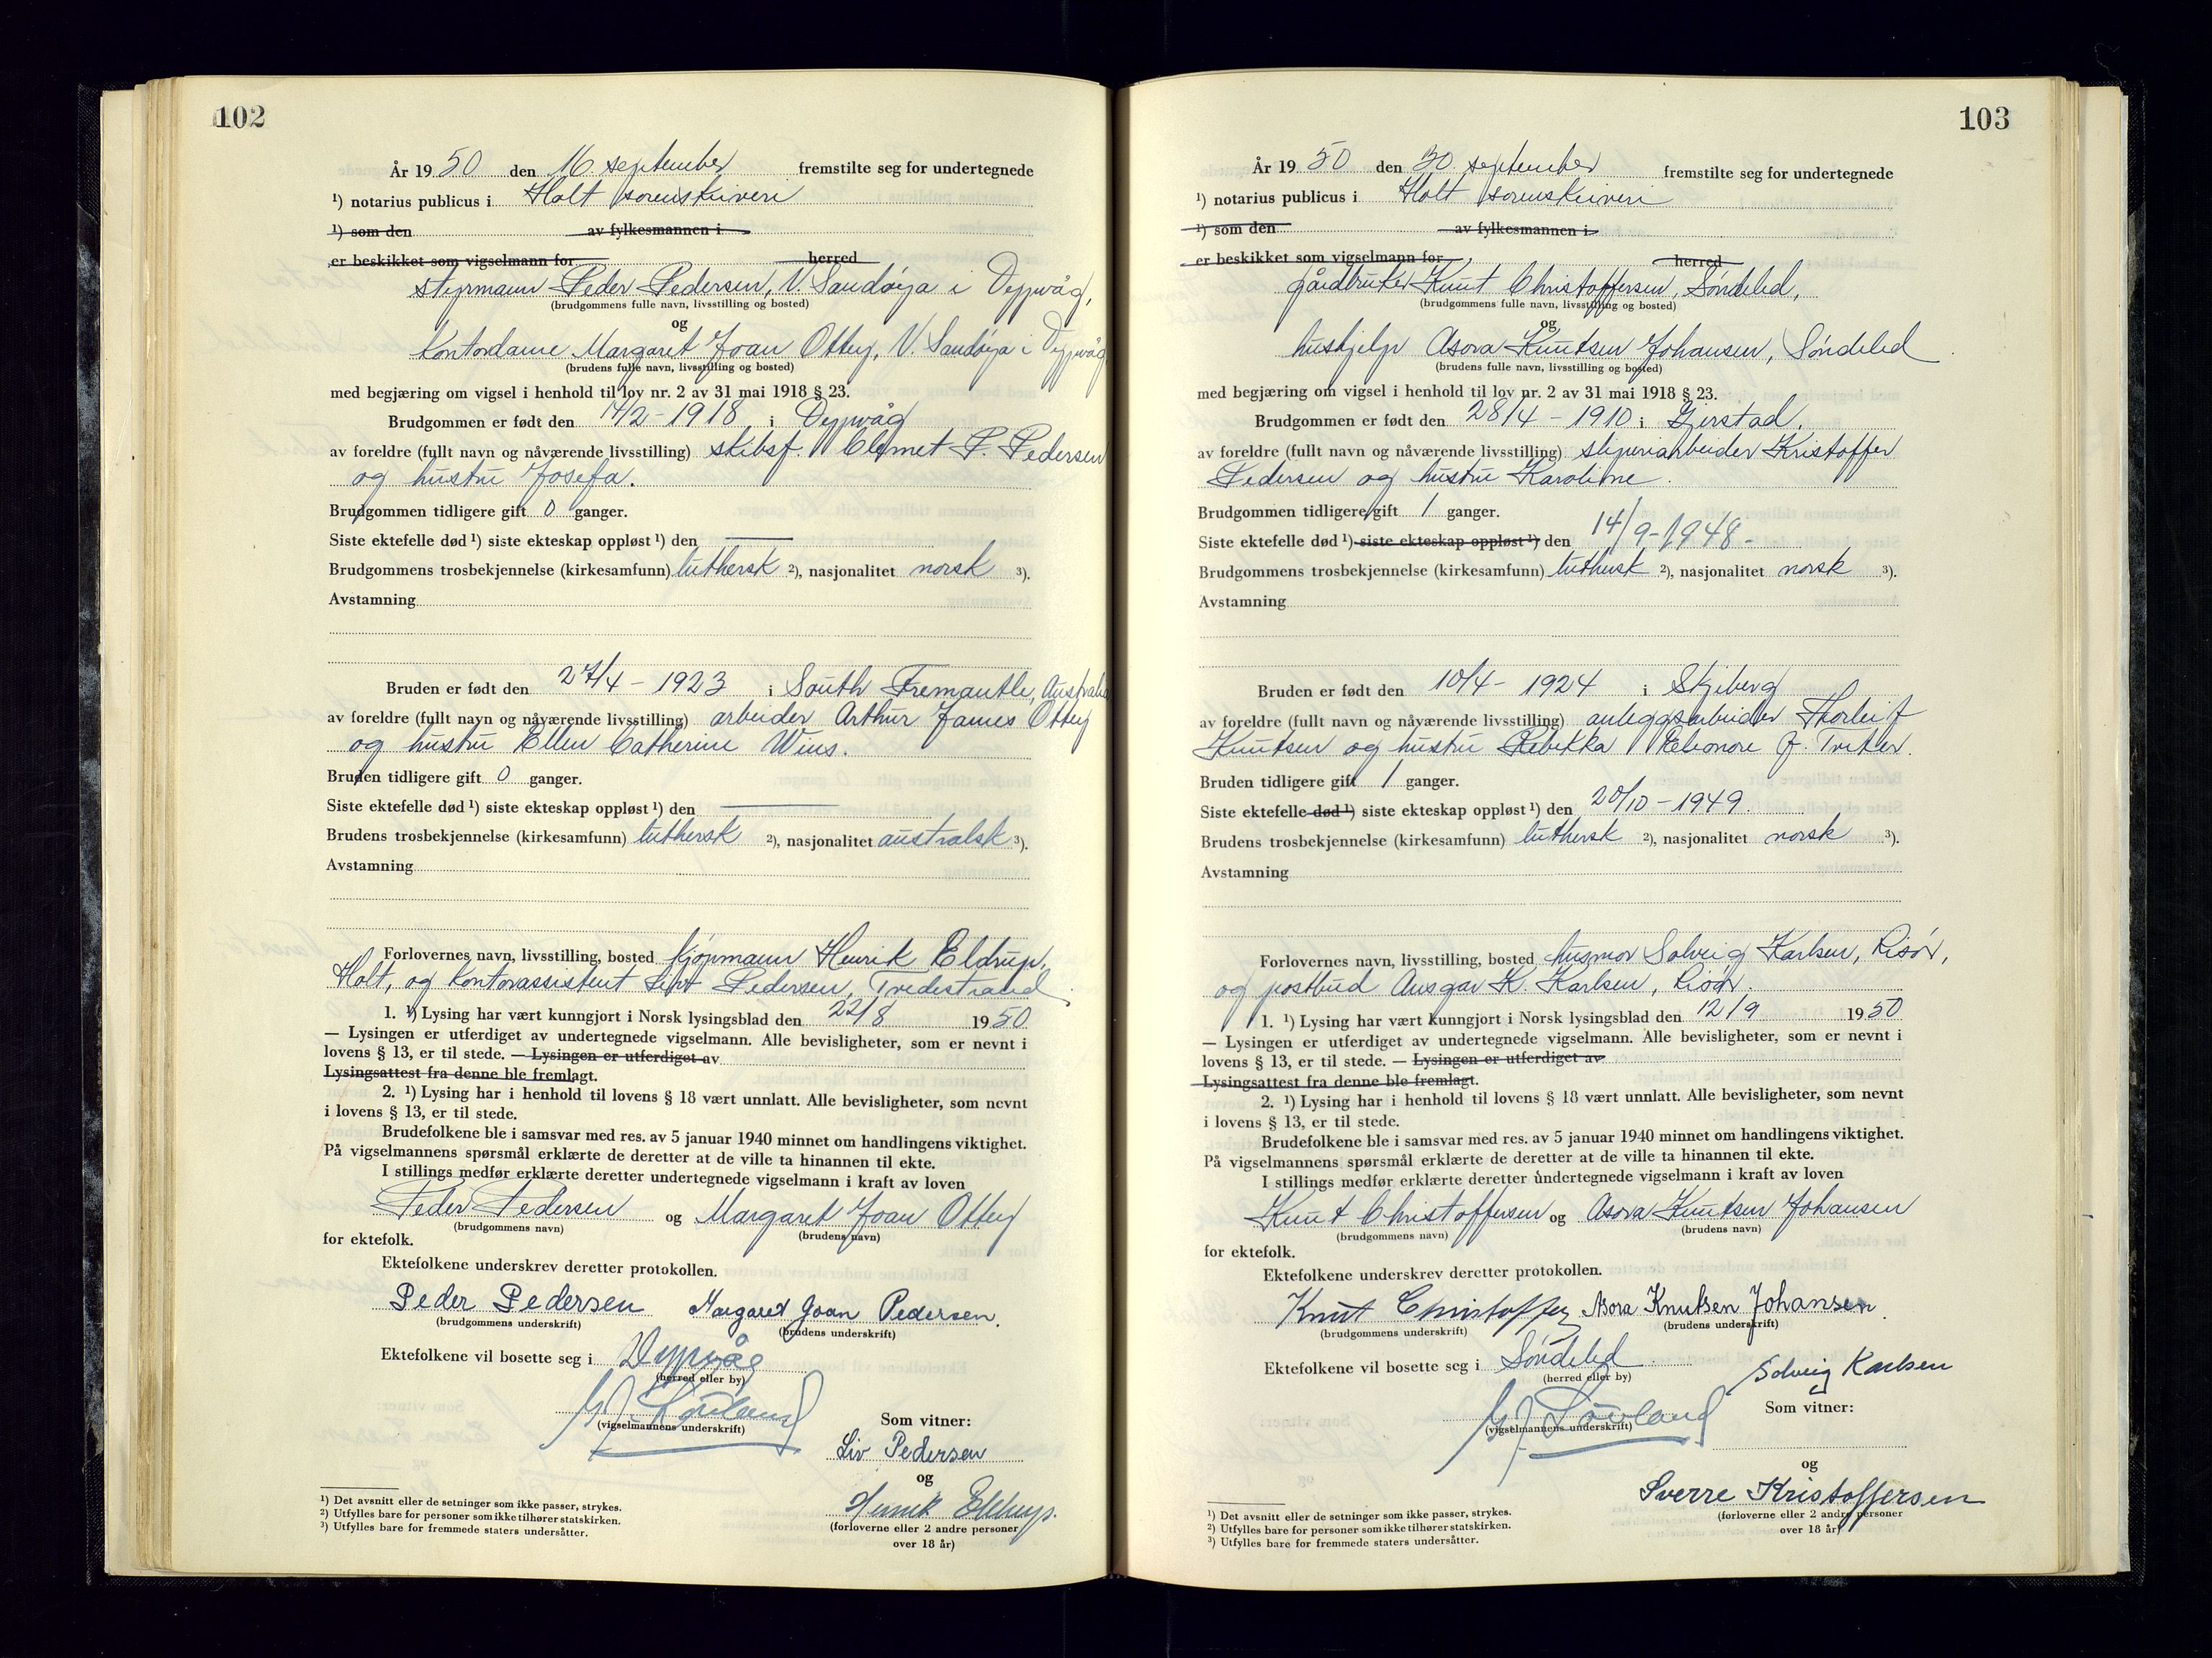 102
År 19 50 den 16. september fremstilte seg for undertegnede
¹) notarius publicus i Holt sorenskriveri
¹) som den av fylkesmannen i
er beskikket som vigselmann for herred
styrmann Peder Pedersen, V. Sandøya i Dypvåg,
(brudgommens fulle navn, livsstilling og bosted)
og
kontordame Margaret Joan Ottey, V. Sandøya i Dypvåg
(brudens fulle navn, livsstilling og bosted)
med begjæring om vigsel i henhold til lov nr. 2 av 31 mai 1918 § 23.
Brudgommen er født den /2 - 1918 i Dypvåg
av foreldre (fullt navn og nåværende livsstilling) skibsf. Clemet P. Pedersen
og hustru Josefa.
Brudgommen tidligere gift 0 ganger.
Siste ektefelle død ¹) siste ekteskap oppløst ¹) den
Brudgommens trosbekjennelse (kirkesamfunn) luthersk ²), nasjonalitet norsk ³).
Avstamning
Bruden er født den 27/4 - 1923 i South Fremantle, Australia
av foreldre (fullt navn og nåværende livsstilling) arbeider Arthur James Ottey
og hustru Ellen Catherine Wins.
Bruden tidligere gift 0 ganger.
Siste ektefelle død ¹) siste ekteskap oppløst ¹) den
Brudens trosbekjennelse (kirkesamfunn) luthersk ²), nasjonalitet australsk ³).
Avstamning
Forlovernes navn, livsstilling, bosted kjøpmann Henrik Eldrup,
Holt, og kontorassistent Liv Pedersen, Tvedestrand
1. ¹) Lysing har vært kunngjort i Norsk lysingsblad den 22/8 19 50
— Lysingen er utferdiget av undertegnede vigselmann. Alle bevisligheter, som er nevnt i
lovens § 13, er til stede. — Lysingen er utferdiget av
Lysingsattest fra denne ble fremlagt.
2. ¹) Lysing har i henhold til lovens § 18 vært unnlatt. Alle bevisligheter, som nevnt
i lovens § 13, er til stede.
Brudefolkene ble i samsvar med res. av 5 januar 1940 minnet om handlingens viktighet.
På vigselmannens spørsmål erklærte de deretter at de ville ta hinannen til ekte.
I stillings medfør erklærte deretter undertegnede vigselmann i kraft av loven
Peder Pedersen og Margaret Joan Ottey
(brudgommens navn) (brudens navn)
for ektefolk.
Ektefolkene underskrev deretter protokollen.
Peder Pedersen Margaret Joan Pedersen.
(brudgommens underskrift) (brudens underskrift)
Ektefolkene vil bosette seg i Dypvåg
(herred eller by)
(vigselmannens underskrift)
Som vitner:
Liv Pedersen
og
Henrik Eldrup.
(forloverne eller 2 andre personer
over 18 år)
¹) Det avsnitt eller de setninger som ikke passer, strykes.
²) Utfylles bare for personer som ikke tilhører statskirken.
³) Utfylles bare for fremmede staters undersåtter.
103
År 19 50 den 30. september fremstilte seg for undertegnede
¹) notarius publicus i Holt sorenskriveri
¹) som den av fylkesmannen i
er beskikket som vigselmann for herred
gårdbruker Knut Christoffersen, Søndeled,
(brudgommens fulle navn, livsstilling og bosted)
og
hushjelp Asora Knutsen Johansen, Søndeled
(brudens fulle navn, livsstilling og bosted)
med begjæring om vigsel i henhold til lov nr. 2 av 31 mai 1918 § 23.
Brudgommen er født den 28/4 - 1910 i Gjerstad.
av foreldre (fullt navn og nåværende livsstilling) sliperiarbeider Kristoffer
Pedersen og hustru Karoline.
Brudgommen tidligere gift 1 ganger.
Siste ektefelle død ¹) siste ekteskap oppløst ¹) den 14/9-1948-
Brudgommens trosbekjennelse (kirkesamfunn) luthersk ²), nasjonalitet norsk ³).
Avstamning
Bruden er født den 10/4 - 1924 i Skjeberg
av foreldre (fullt navn og nåværende livsstilling) anleggsarbeider Thorleif
Knutsen og hustru Rebekka Eleonore f.
Bruden tidligere gift 1 ganger.
Siste ektefelle død ¹) siste ekteskap oppløst ¹) den 20/10 - 1949.
Brudens trosbekjennelse (kirkesamfunn) luthersk ²), nasjonalitet norsk ³).
Avstamning
Forlovernes navn, livsstilling, bosted husmor Solveig Karlsen, Risør,
og postbud Ansgar K. Karlsen, Risør.
1. ¹) Lysing har vært kunngjort i Norsk lysingsblad den 12/9 19 50
— Lysingen er utferdiget av undertegnede vigselmann. Alle bevisligheter, som er nevnt i
lovens § 13, er til stede. — Lysingen er utferdiget av
Lysingsattest fra denne ble fremlagt.
2. ¹) Lysing har i henhold til lovens § 18 vært unnlatt. Alle bevisligheter, som nevnt
i lovens § 13, er til stede.
Brudefolkene ble i samsvar med res. av 5 januar 1940 minnet om handlingens viktighet.
På vigselmannens spørsmål erklærte de deretter at de ville ta hinannen til ekte.
I stillings medfør erklærte deretter undertegnede vigselmann i kraft av loven
Knut Christoffersen og Asora Knutsen Johansen
(brudgommens navn) (brudens navn)
for ektefolk.
Ektefolkene underskrev deretter protokollen.
Knut Christoffer Asora Knutsen Johansen.
(brudgommens underskrift) (brudens underskrift)
Ektefolkene vil bosette seg i Søndeled
(herred eller by)
Solveig Karlsen
(vigselmannens underskrift)
Som vitner:
og
Sverre Kristoffersen
(forloverne eller 2 andre personer
over 18 år)
¹) Det avsnitt eller de setninger som ikke passer, strykes.
²) Utfylles bare for personer som ikke tilhører statskirken.
³) Utfylles bare for fremmede staters undersåtter.